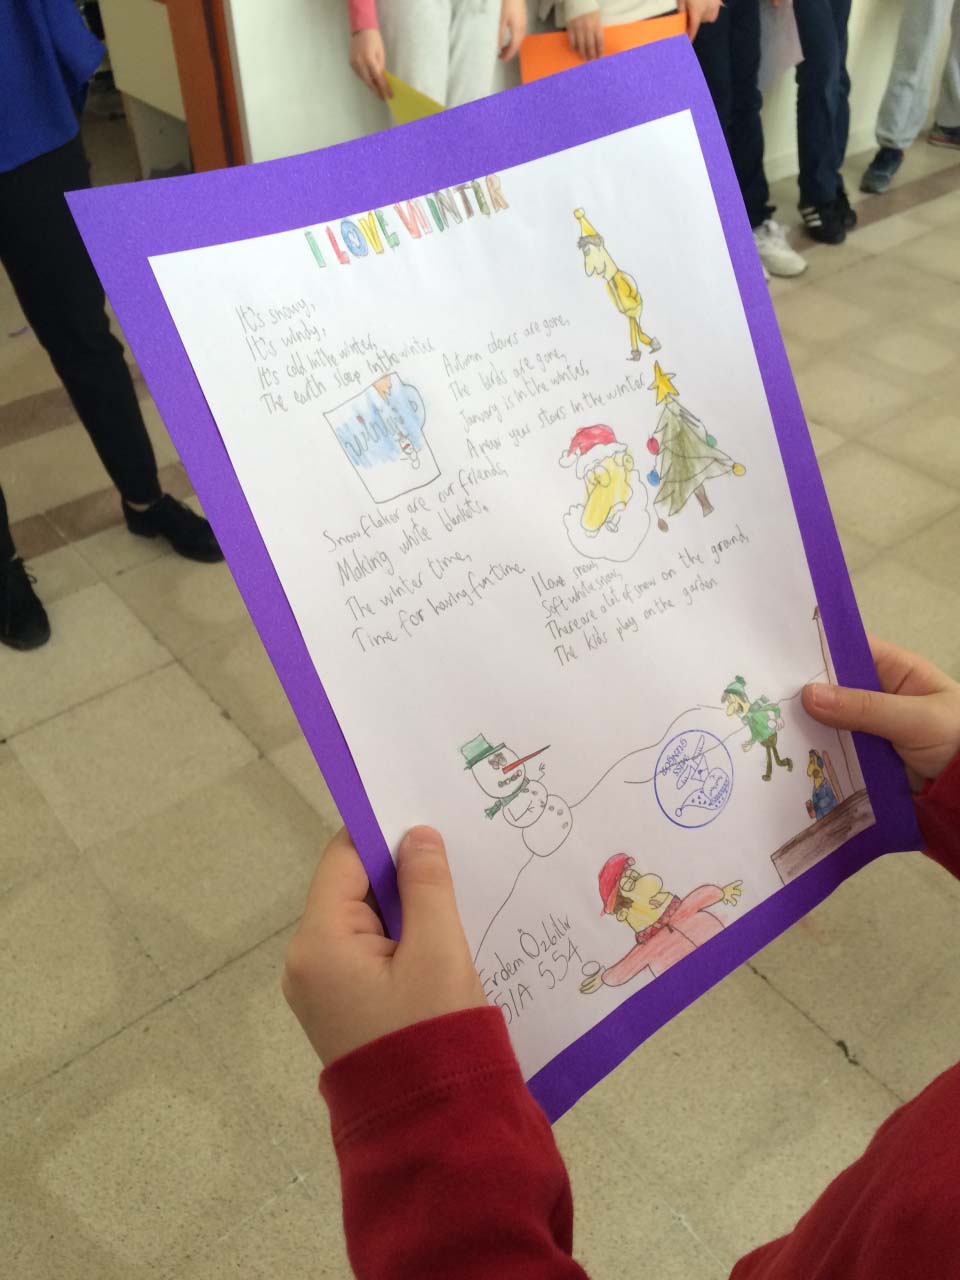 I LOVE WINTER
It's snowy,
It's windy,
It's cold in the winter,
The earth sleep in the winter
Autumn colours are gone,
The birds are gone,
January is in the winter,
A new year stars in the winter
Snowflakes are our friends,
Making white blankets.
The winter time,
Time for having fun time.
I love snow,
Soft white snow,
There are a lot of snow on the ground,
The kids play on the garden
MISS
Erdem Özbilir
5/A 554